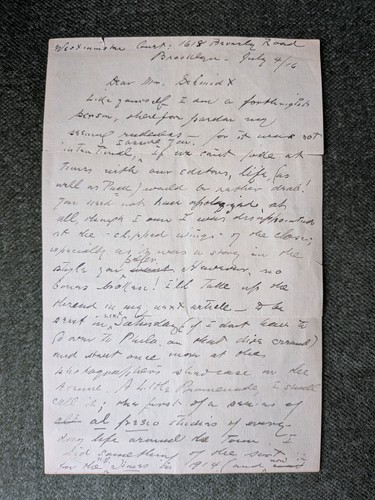 Westminster Court: 1618 Beverly Road
Brooklyn - July 4/16
Dear Mr. Schmidt
Like yourself I am a forthright
person, therefor pardon my
seeming rudeness - for it was not
intentional, I assure you. If we can't joke at
times with our editors, life (as
well as Trade) would be rather drab!
You need not have apologized at
all though I own I was disappointed
at the "clipped wings" of the closing
especially as it was a story in the
style you prefer. However, no
bones broken! I'll take up the
thread in my next article - to be
sent in Saturday (if I don't have to
go down to Phila. on that day)
and start once more at the
photographer's showcase in the
Avenue. A Little Promenade, I shall
call it; the first of a series of
al fresco studies of every-
day life around the town. I
did something of the sort
for the Times in 1914 (and